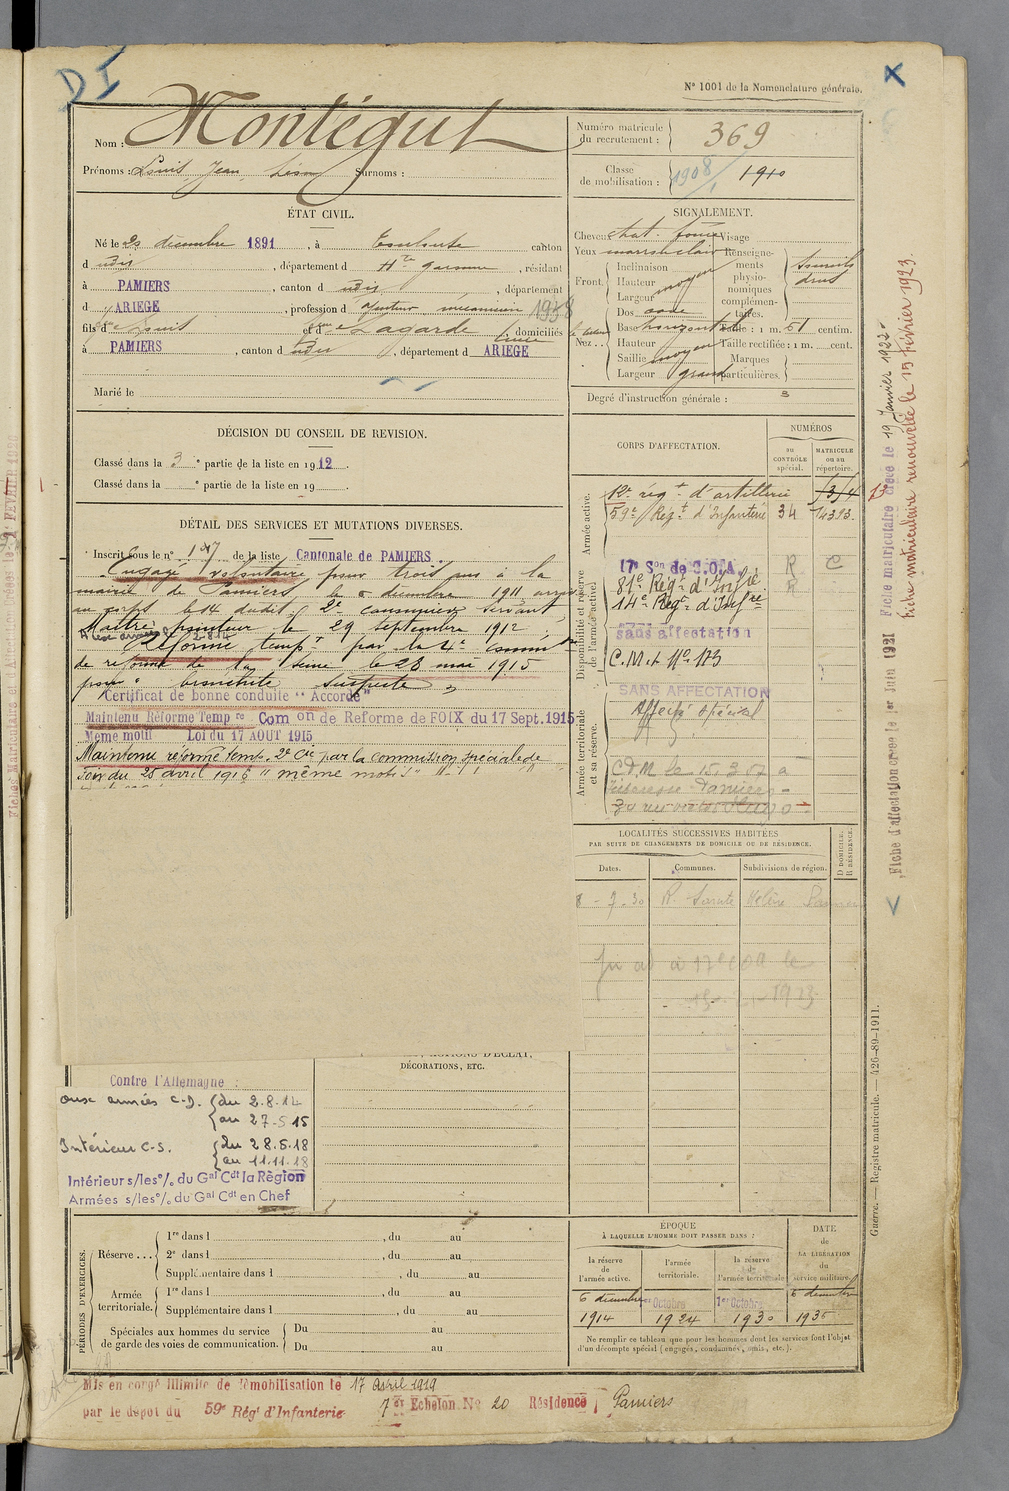 D I
N° 1001 de la Nomenclature générale.
Nom : Montégut
Prénoms : Louis Jean Léon Surnoms :
Numéro matricule du recrutement : 369
Classe de mobilisation : 1908 / 1910
ÉTAT CIVIL.
Né le décembre 1891, à Toulouse canton
d udis, département d Hte Garonne, résidant
à PAMIERS, canton d udis, département
d ARIEGE, profession d ajusteur mécanicien 1938
fils de Louis et de Lagarde domiciliés
à PAMIERS, canton d udis, département d ARIEGE
Marié le
SIGNALEMENT.
Cheveux chat. foncé Visage
Yeux marron clair
Front. Inclinaison
Hauteur moyen
Largeur
Renseignements physionomiques complémentaires. Sourcils drus
Nez .. Dos
Base horizontale
Hauteur
Saillie moyen
Largeur grand
Taille : 1 m. 61 centim.
Taille rectifiée : 1 m. cent.
Marques particulières.
Degré d'instruction générale : 3
DÉCISION DU CONSEIL DE REVISION.
Classé dans la 3e partie de la liste en 1912.
Classé dans la e partie de la liste en 19 .
DÉTAIL DES SERVICES ET MUTATIONS DIVERSES.
Inscrit sous le n° 107 de la liste Cantonale de PAMIERS
Engagé volontaire pour trois ans à la
mairie de Pamiers, le 6 décembre 1911 arrivé
au corps le 14 dudit, 2e canonnier servant
Maître pointeur le 29 septembre 1912
Réformé temp.re par la 4e Commion
de réforme de la Seine le 28 mai 1915
pour bronchite suspecte
Certificat de bonne conduite "Accordé"
Maintenu Réformé Temp re Com on de Reforme de FOIX du 17 Sept. 1915
Meme motif Loi du 17 AOUT 1915
Maintenu réformé temp. 2e Cie par la commission spéciale de
Foix du 25 avril 1916 " même motif "
CORPS D'AFFECTATION.
NUMÉROS
au CONTRÔLE spécial.
MATRICULE ou au répertoire.
Armée active.
régt d'artillerie
59e Régt d'Infanterie 34 14393
Disponibilité et réserve de l'armée active
17e Son de C.O.A. R C
81e Régt d'Infie R
14e Régt d'Infie
sans affectation
Armée territoriale et sa réserve.
SANS AFFECTATION
Affecté spécial
LOCALITÉS SUCCESSIVES HABITÉES
PAR SUITE DE CHANGEMENTS DE DOMICILE OU DE RÉSIDENCE.
Dates. Communes. Subdivisions de région. D DOMICILE. R RÉSIDENCE.
DÉCORATIONS, ETC.
Contre l'Allemagne :
aux armées C-D. du 2.8.14
au 27-5-15
Intérieur C-S. du 28.5.18
au 11.11.18
Intérieur s/les % du Gal Cdt la Règion
Armées s/les % du Gal Cdt en Chef
PÉRIODES D'EXERCICES.
Réserve ... 1re dans l , du au
2e dans l , du au
Supplémentaire dans l , du au
Armée territoriale. 1re dans l , du au
Supplémentaire dans l , du au
Spéciales aux hommes du service de garde des voies de communication. Du au
Du au
ÉPOQUE
À LAQUELLE L'HOMME DOIT PASSER DANS :
la réserve de l'armée active.
l'armée territoriale.
la réserve de l'armée territoriale
DATE de LA LIBÉRATION du service militaire.
6 décembre 1914
1er Octobre 1924
1er Octobre 1930
6 décembre 1936
Ne remplir ce tableau que pour les hommes dont les services font l'objet
d'un décompte spécial (engagés, condamnés, omis, etc.).
Mis en congé illimité de démobilisation le 17 Avril 1919
par le dépôt du 59e Régt d'Infanterie 7e Echelon. No 20 Résidence Pamiers
Fiche d'affectation créée le 1er Juin 1921 Fiche matriculaire créée le 19 Janvier 1922
fiche matriculaire renouvelée le 15 Février 1923.
Guerre. — Registre matricule. — 426-89-1911.